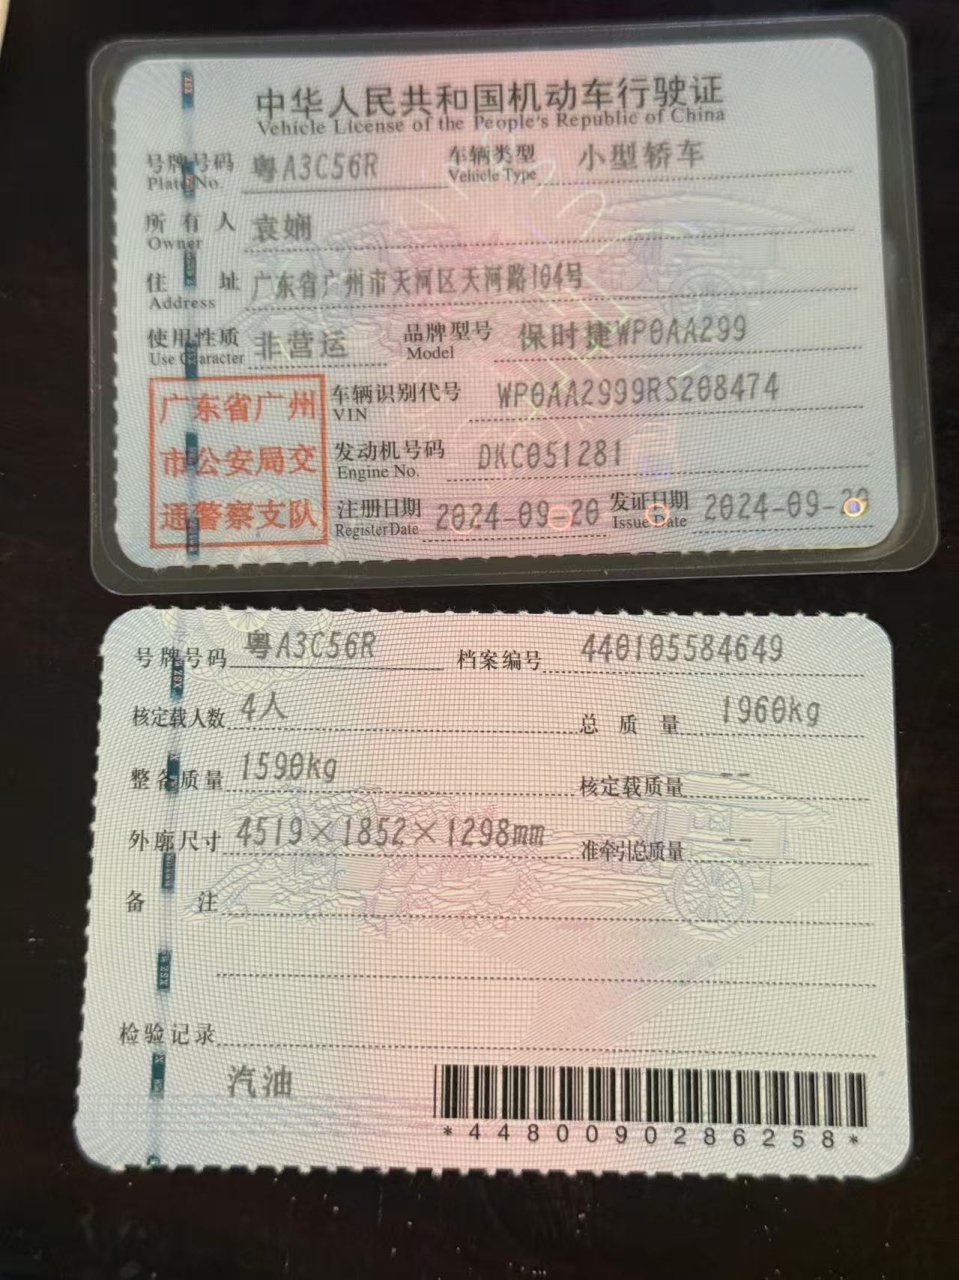 中华人民共和国机动车行驶证
Vehicle License of the People's Republic of China
号牌号码 粤A3C56R 车辆类型 小型轿车
Plate No. Vehicle Type
所有人 袁娴
Owner
住址 广东省广州市天河区天河路104号
Address
使用性质 非营运 品牌型号 保时捷WP0AA299
Use Character Model
广东省广州市公安局交通警察支队
车辆识别代号 WP0AA2999RS208474
VIN
发动机号码 DKC051281
Engine No.
注册日期 2024-09-20 发证日期 2024-09-20
Register Date Issue Date
号牌号码 粤A3C56R 档案编号 440105584649
核定载人数 4人 总质量 1960kg
整备质量 1590kg 核定载质量 --
外廓尺寸 4519×1852×1298mm 准牵引总质量 --
备注
检验记录
汽油
*4480090286258*